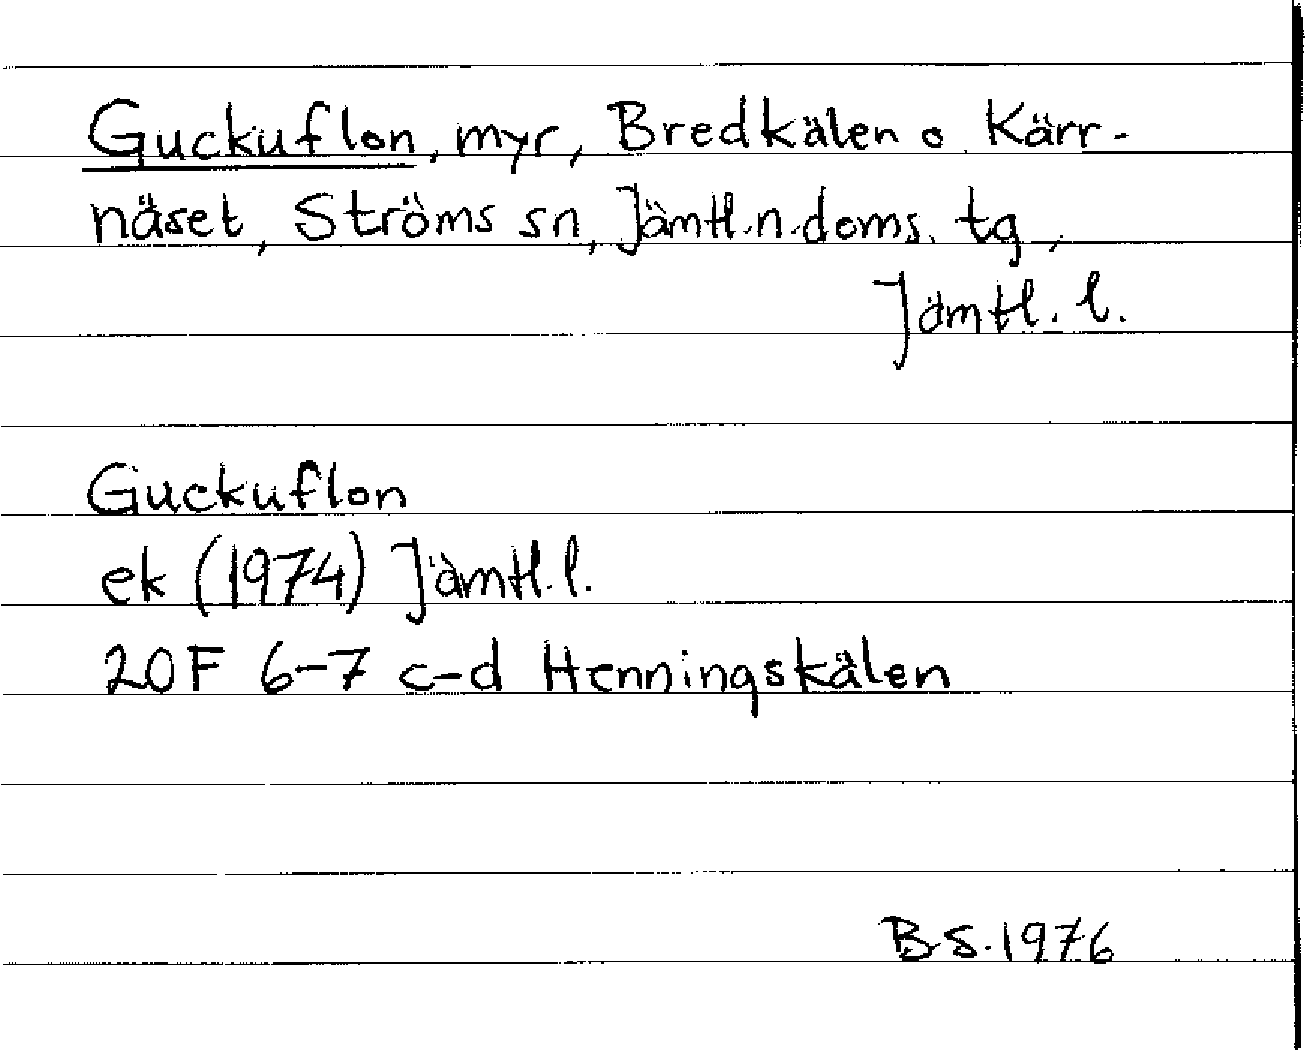 Guckuflon, myr, Bredkälen o Kärr-
näset, Ströms sn, Jämtl.n.doms. tg,
Jämtl. l.
Guckuflon
ek (1974) Jämtl. l.
20F 6-7 c-d Henningskälen
B.S. 1976